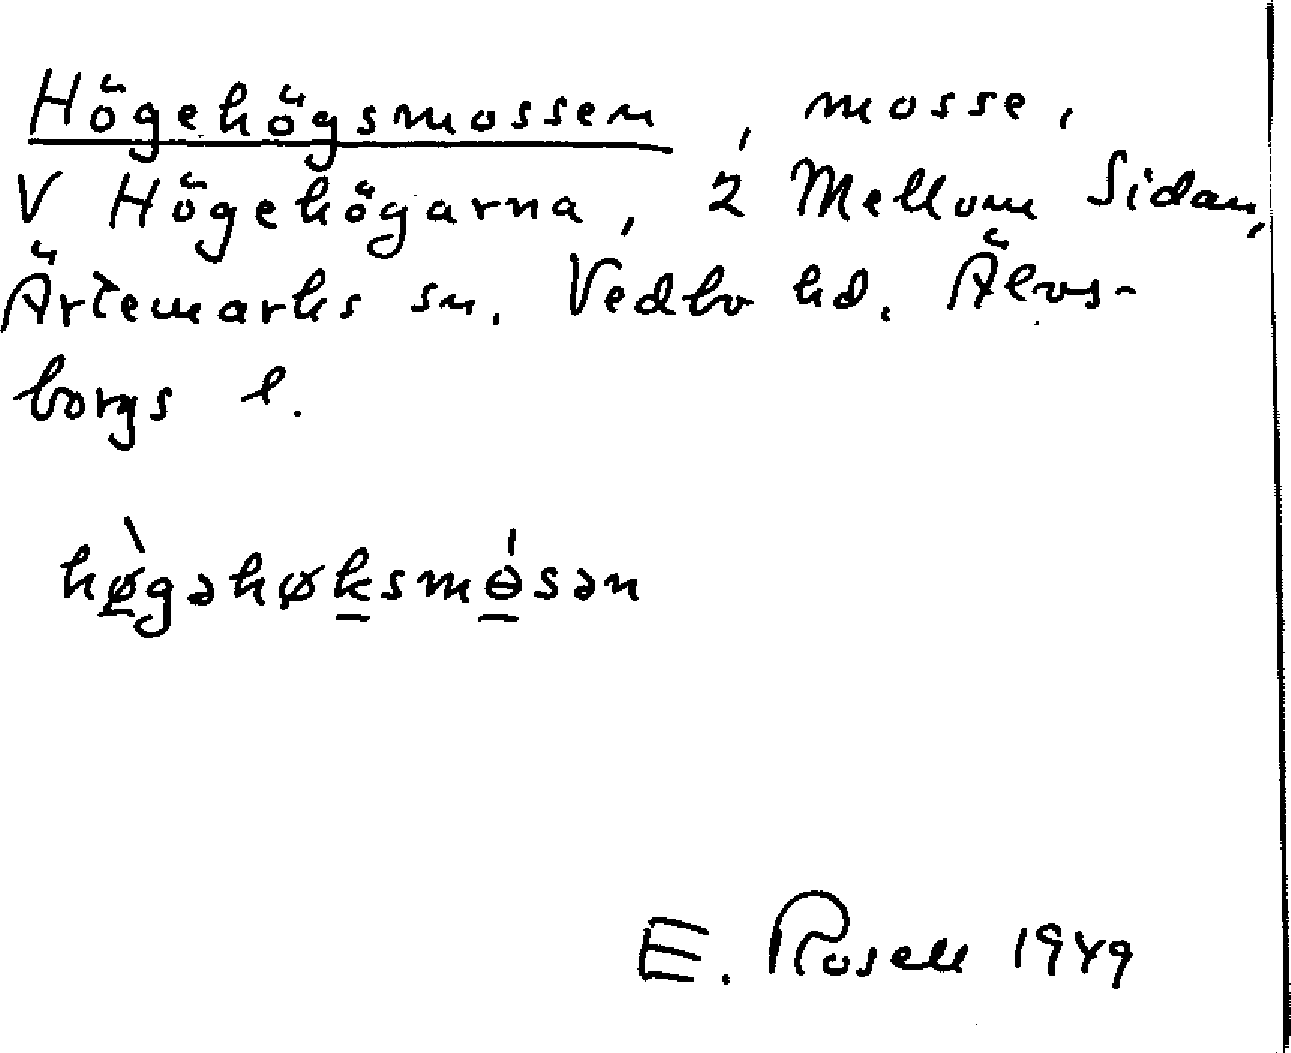 Högehögsmossen, mosse,
V Högehögarna, 2 Mellom Sidan,
Ärtemarks sn. Vedbo hd. Älvs-
borgs l.
hø̠̀gəhøk̠smɵ̠́sən
E. Rosell 1949